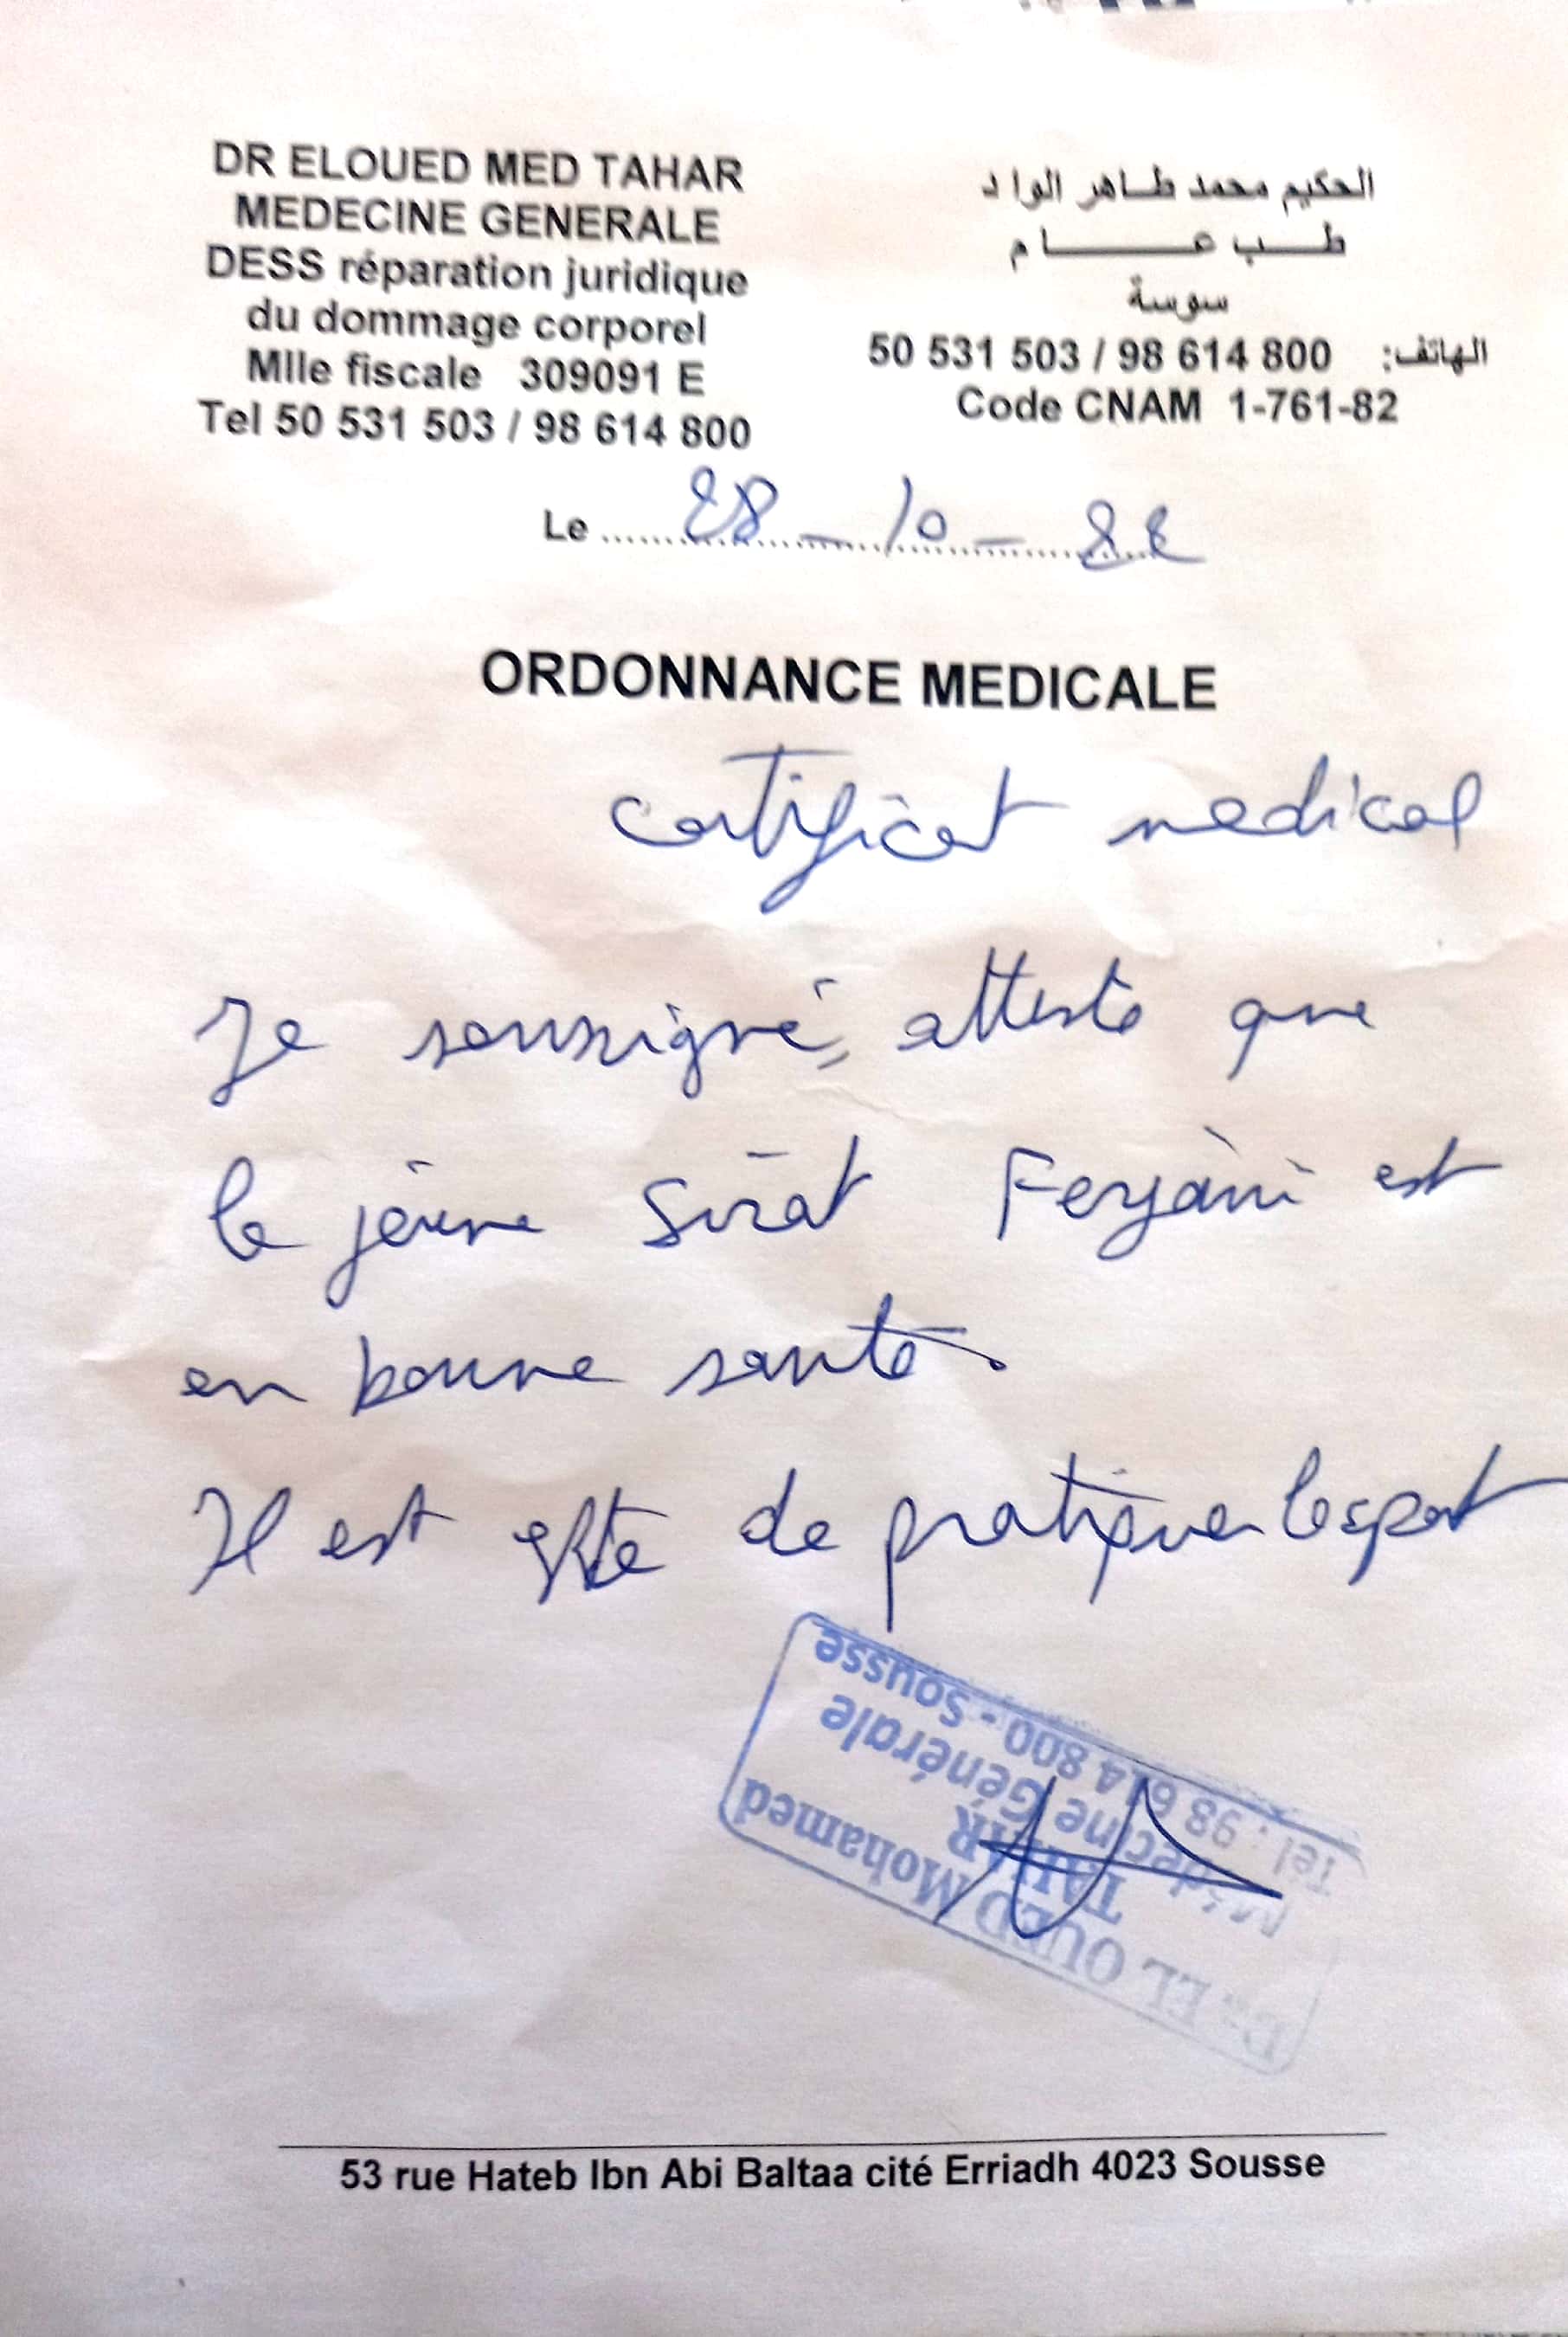 DR ELOUED MED TAHAR
MEDECINE GENERALE
DESS réparation juridique
du dommage corporel
Mlle fiscale 309091 E
Tel 50 531 503 / 98 614 800
الحكيم محمد طاهر الواد
طب عام
سوسة
الهاتف: 50 531 503 / 98 614 800
Code CNAM 1-761-82
Le 28 - 10 - 22
ORDONNANCE MEDICALE
Certificat medical
Je soussigné, atteste que
le jeune Sirat Feryani est
en bonne santé.
Il est apte de pratiquer le sport
Dr EL OUED Mohamed
TAHAR
Médecine Générale
Tel : 98 614 800 - Sousse
53 rue Hateb Ibn Abi Baltaa cité Erriadh 4023 Sousse